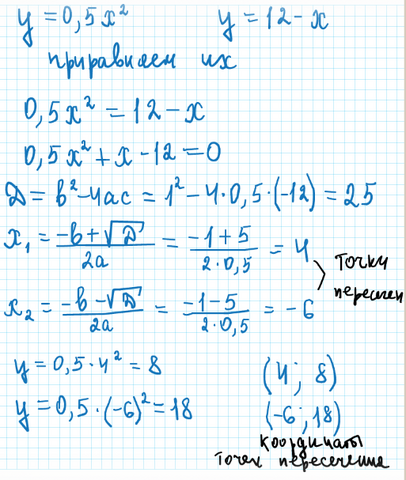 y = 0,5x² y = 12 - x
приравниваем их
0,5x² = 12 - x
0,5x² + x - 12 = 0
D = b² - 4ac = 1² - 4·0,5·(-12) = 25
x₁ = (-b + √D)/(2a) = (-1 + 5)/(2·0,5) = 4
x₂ = (-b - √D)/(2a) = (-1 - 5)/(2·0,5) = -6
точки
пересечен
y = 0,5·4² = 8 (4; 8)
y = 0,5·(-6)² = 18 (-6; 18)
координаты
точек пересечение